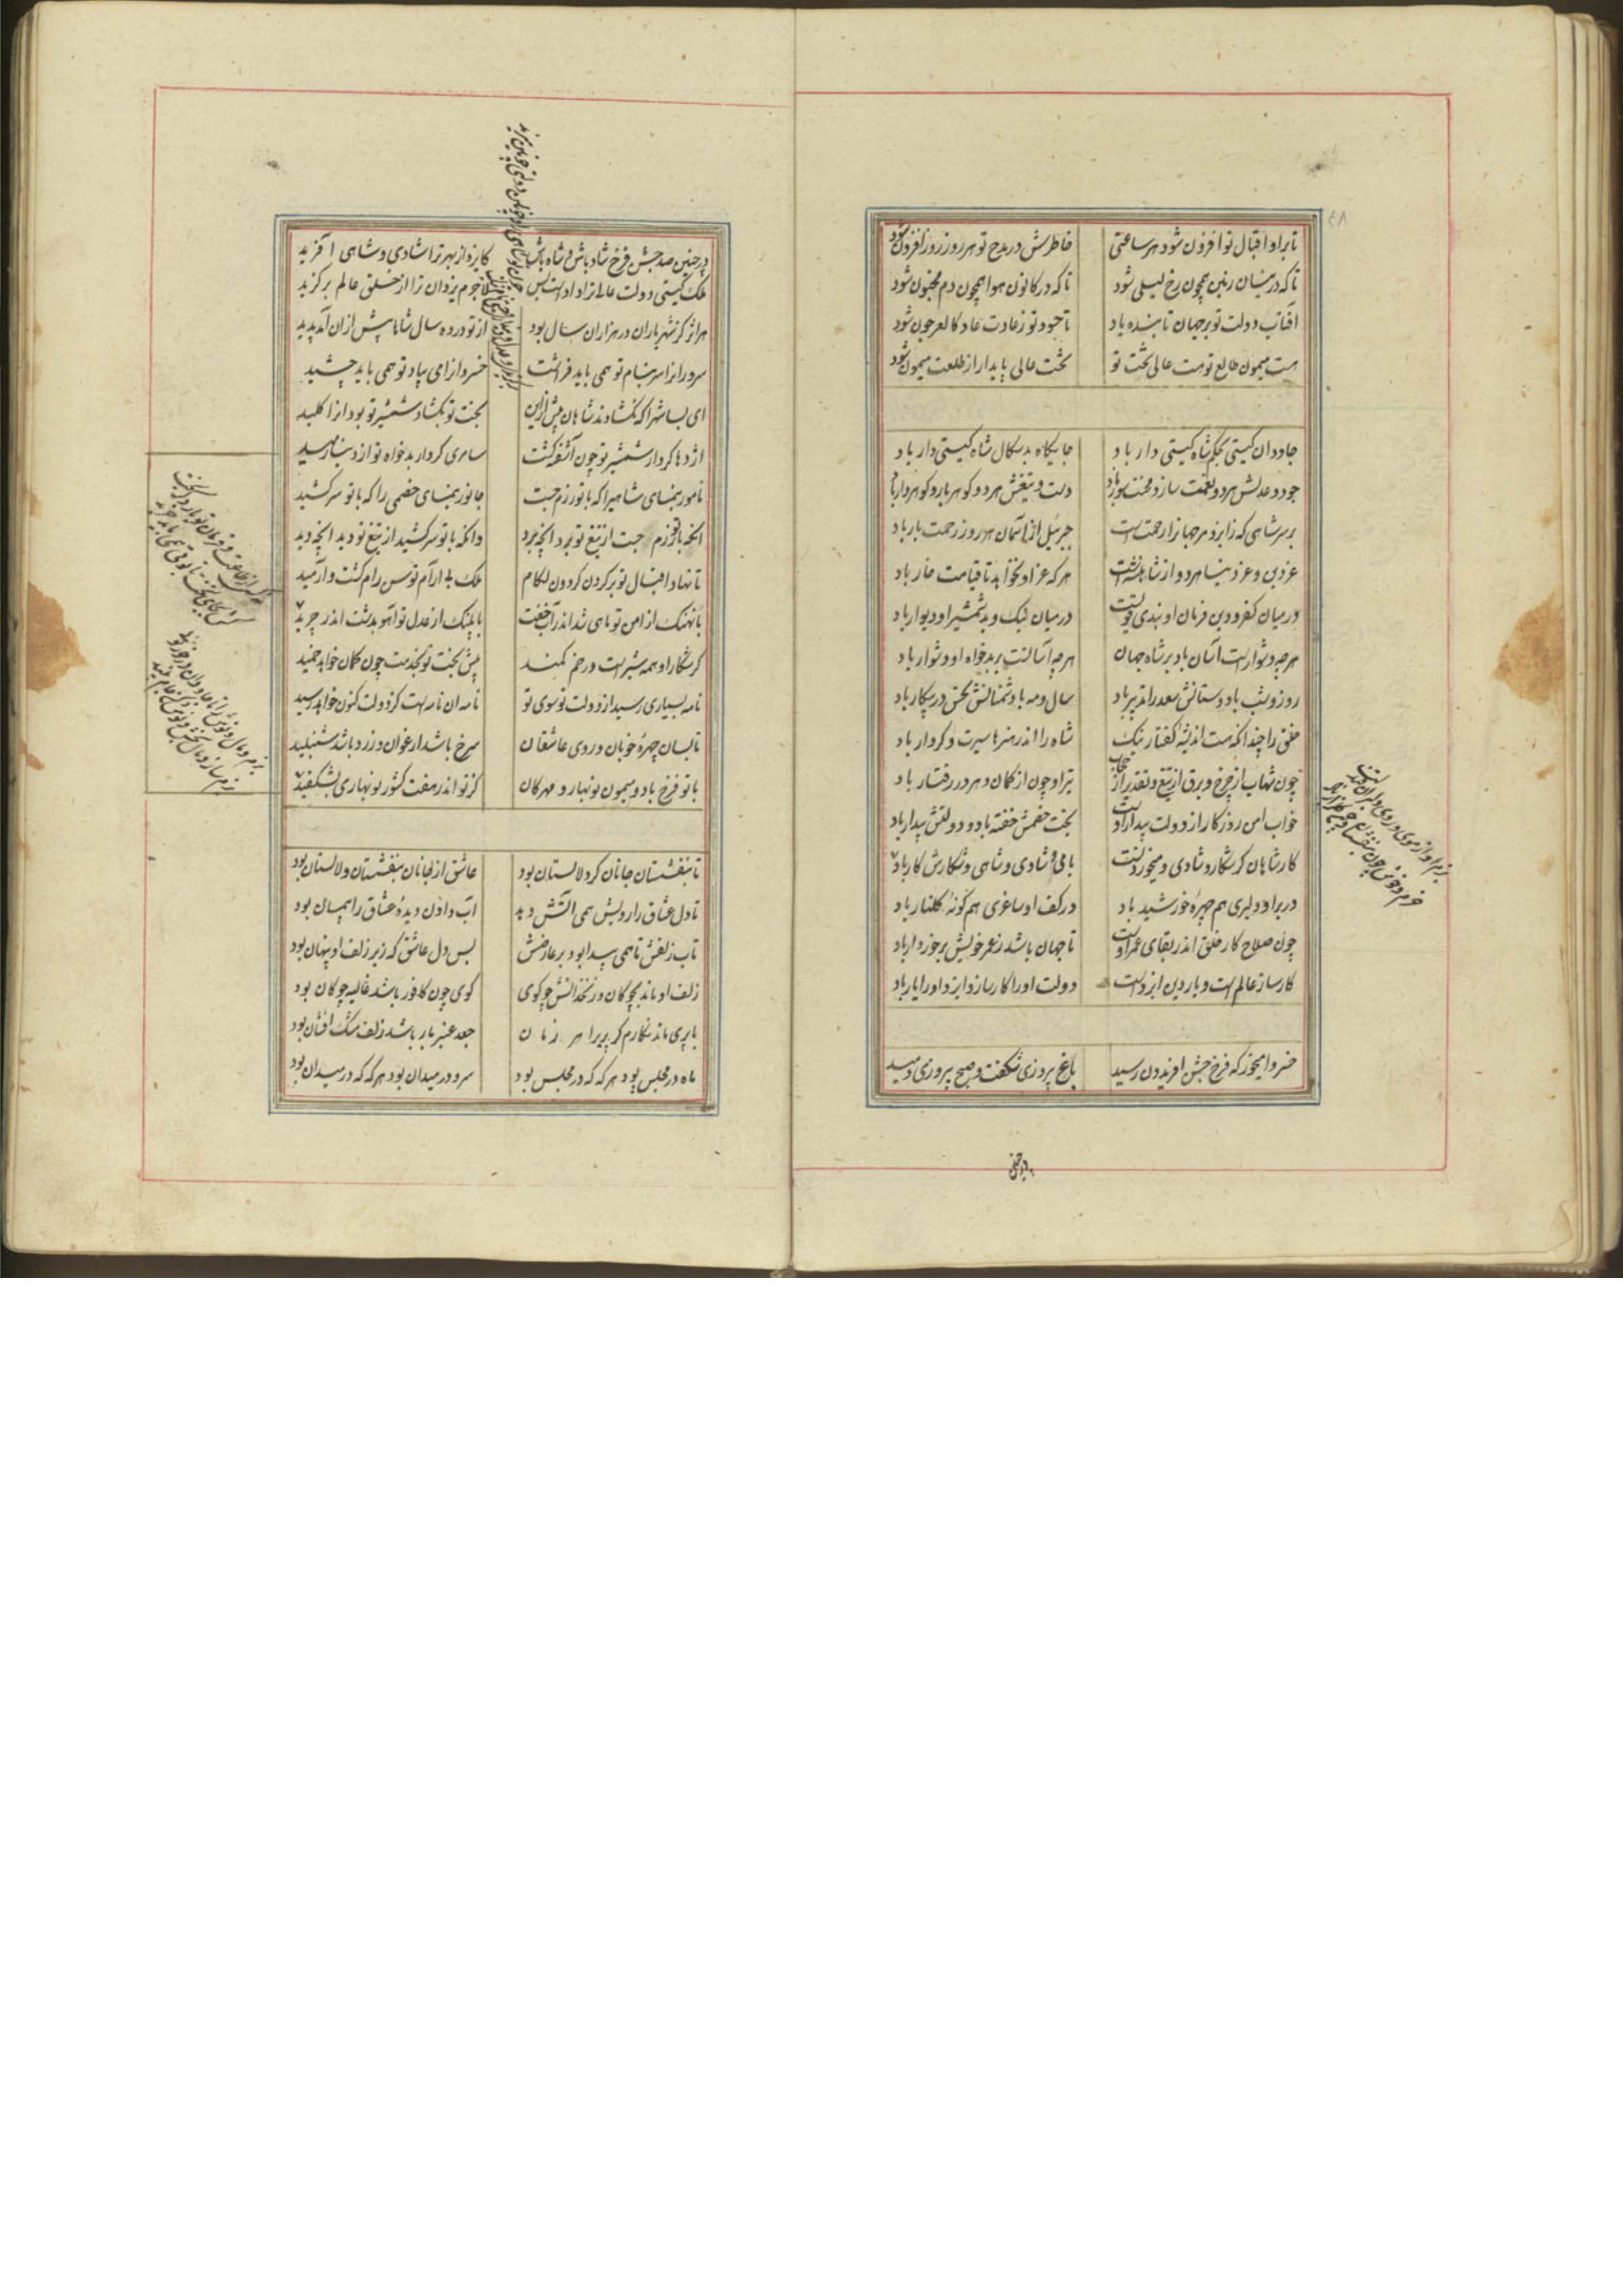 ۴۸
تا براو اقبال تو افزون شود هر ساعتی خاطرش در مدح تو هر روز روز افزون شود
تا که در نیسان زمین همچون رخ لیلی شود تا که در کانون هوا همچون دم مجنون شود
آفتاب دولت تو بر جهان تابنده باد تا حسود تو ز عادت عاد کالعرجون شود
هست میمون طالع تو هست عالی تخت تو تخت عالی پایدار از طلعت میمون شود
جاودان کیتی بحکم شاه کیتی دار باد جایکاه بدسکال شاه کیتی دار باد
جود و عدلش هر دو نعمت ساز و محنت سوز باد دست و تیغش هر دو کوهر بار و کوهردار باد
بر سر شاهی که زایزد مر جهانرا رحمت است جبرئیل از آسمان هر روز رحمت بار باد
عز دین و عز دنیا هر دو از شاهنشه است هر که عز او نخواهد تا قیامت خار باد
در میان کفر و دین فرمان او بندی قویست در میان نیک و بد شمشیر او دیوار باد
هر چه دشوار است آسان باد بر شاه جهان هر چه آسانست بر بدخواه او دشوار باد
روز و شب با دوستانش سعد را تدبیر باد سال و مه با دشمنانش نحس در پیکار باد
خلق را چندانکه هست اندیشه کفتار نیک شاه را اندر هنرها سیرت و کردار باد
چون شهاب از چرخ و برق از میغ و تقدیر از حجاب تیر او چون از کمان در رفتار باد
خواب امن روزکار از دولت بیدار اوست بخت خصمش خفته باد و دولتش بیدار باد
کار شاهان کر شکار و شادی و میخوردنست با می و شادی و شاهی و شکارش کار باد
در بر او دلبری هم چهره خورشید باد در کف او ساغری هم کونه کلنار باد
چون صلاح کار خلق اندر بقای عمر اوست تا جهان باشد ز عمر خویش برخوردار باد
کار ساز عالم است و یار دین ایزد است دولت او را کار ساز و ایزد او را یار باد
خسروا میخور که فرخ جشن افریدون رسید باغ پیروزی شکفت و صبح پیروزی دمید
در چنین
در چنین صد جشن فرخ شاد باش و شاه باش کایزد از بهر ترا شادی و شاهی آفرید
ملک کیتی دولت عالی ترا داد است بس لاجرم یزدان ترا از خلق عالم برکزید
هر اثر کز شهریاران در هزاران سال بود از تو در ده سال شاها بیش از آن آمد پدید
سرورانرا سر بنام تو همی باید فراشت خسروانرا می بیاد تو همی باید چشید
ای بسا شهرا که نکشادند شاهان پیش ازین بخت تو بکشاد و شمشیر تو بود آنرا کلید
اژدها کردار شمشیر تو چون آشفته کشت سامری کردار بدخواه تو از دنیا رمید
نامور بنمای شاهیرا که با تو رزم جست جانور بنمای خصمی را که با تو سر کشید
آنچه با تو رزم جست از تیغ تو برد آنچه برد وانکه با تو سر کشید از تیغ تو دید آنچه دید
تا نهاد اقبال تو بر کردن کردون لکام ملک بی آرام توسن رام کشت و آرمید
با نهنک از امن تو ماهی شد اندر آب خفت با پلنک از عدل تو آهو بدشت اندر چرید
کر شکار او همه شیر است در خم کمند پیش تخت تو بخدمت چون کمان خواهد خمید
نامه بسیاری رسید از دولت تو سوی تو نامه آن نامه است کز دولت کنون خواهد رسید
تا بسان چهره خوبان و روی عاشقان سرخ باشد ارغوان و زرد باشد شنبلید
با تو فرخ باد و میمون نوبهار و مهرکان کز تو اندر هفت کشور نوبهاری بشکفید
تا بنفشستان جانان کرد لالستان بود عاشق از جانان بنفشستان و لالستان بود
تا دل عشاق را رویش همی آتش دهد آب دادن دیده عشاق را پیمان بود
تاب زلفش تا همی پیدا بود بر عارضش بس دل عاشق که زیر زلف او پنهان بود
زلف او ماند بچوکان و زنخدانش چو کوی کوی چون کافور باشد غالیه چوکان بود
با پری ماند نکارم کر پری را هر زمان جعد عنبر بار باشد زلف مشک افشان بود
ماه در مجلس بود هر که که در مجلس بود سرو در میدان بود هر که که در میدان بود